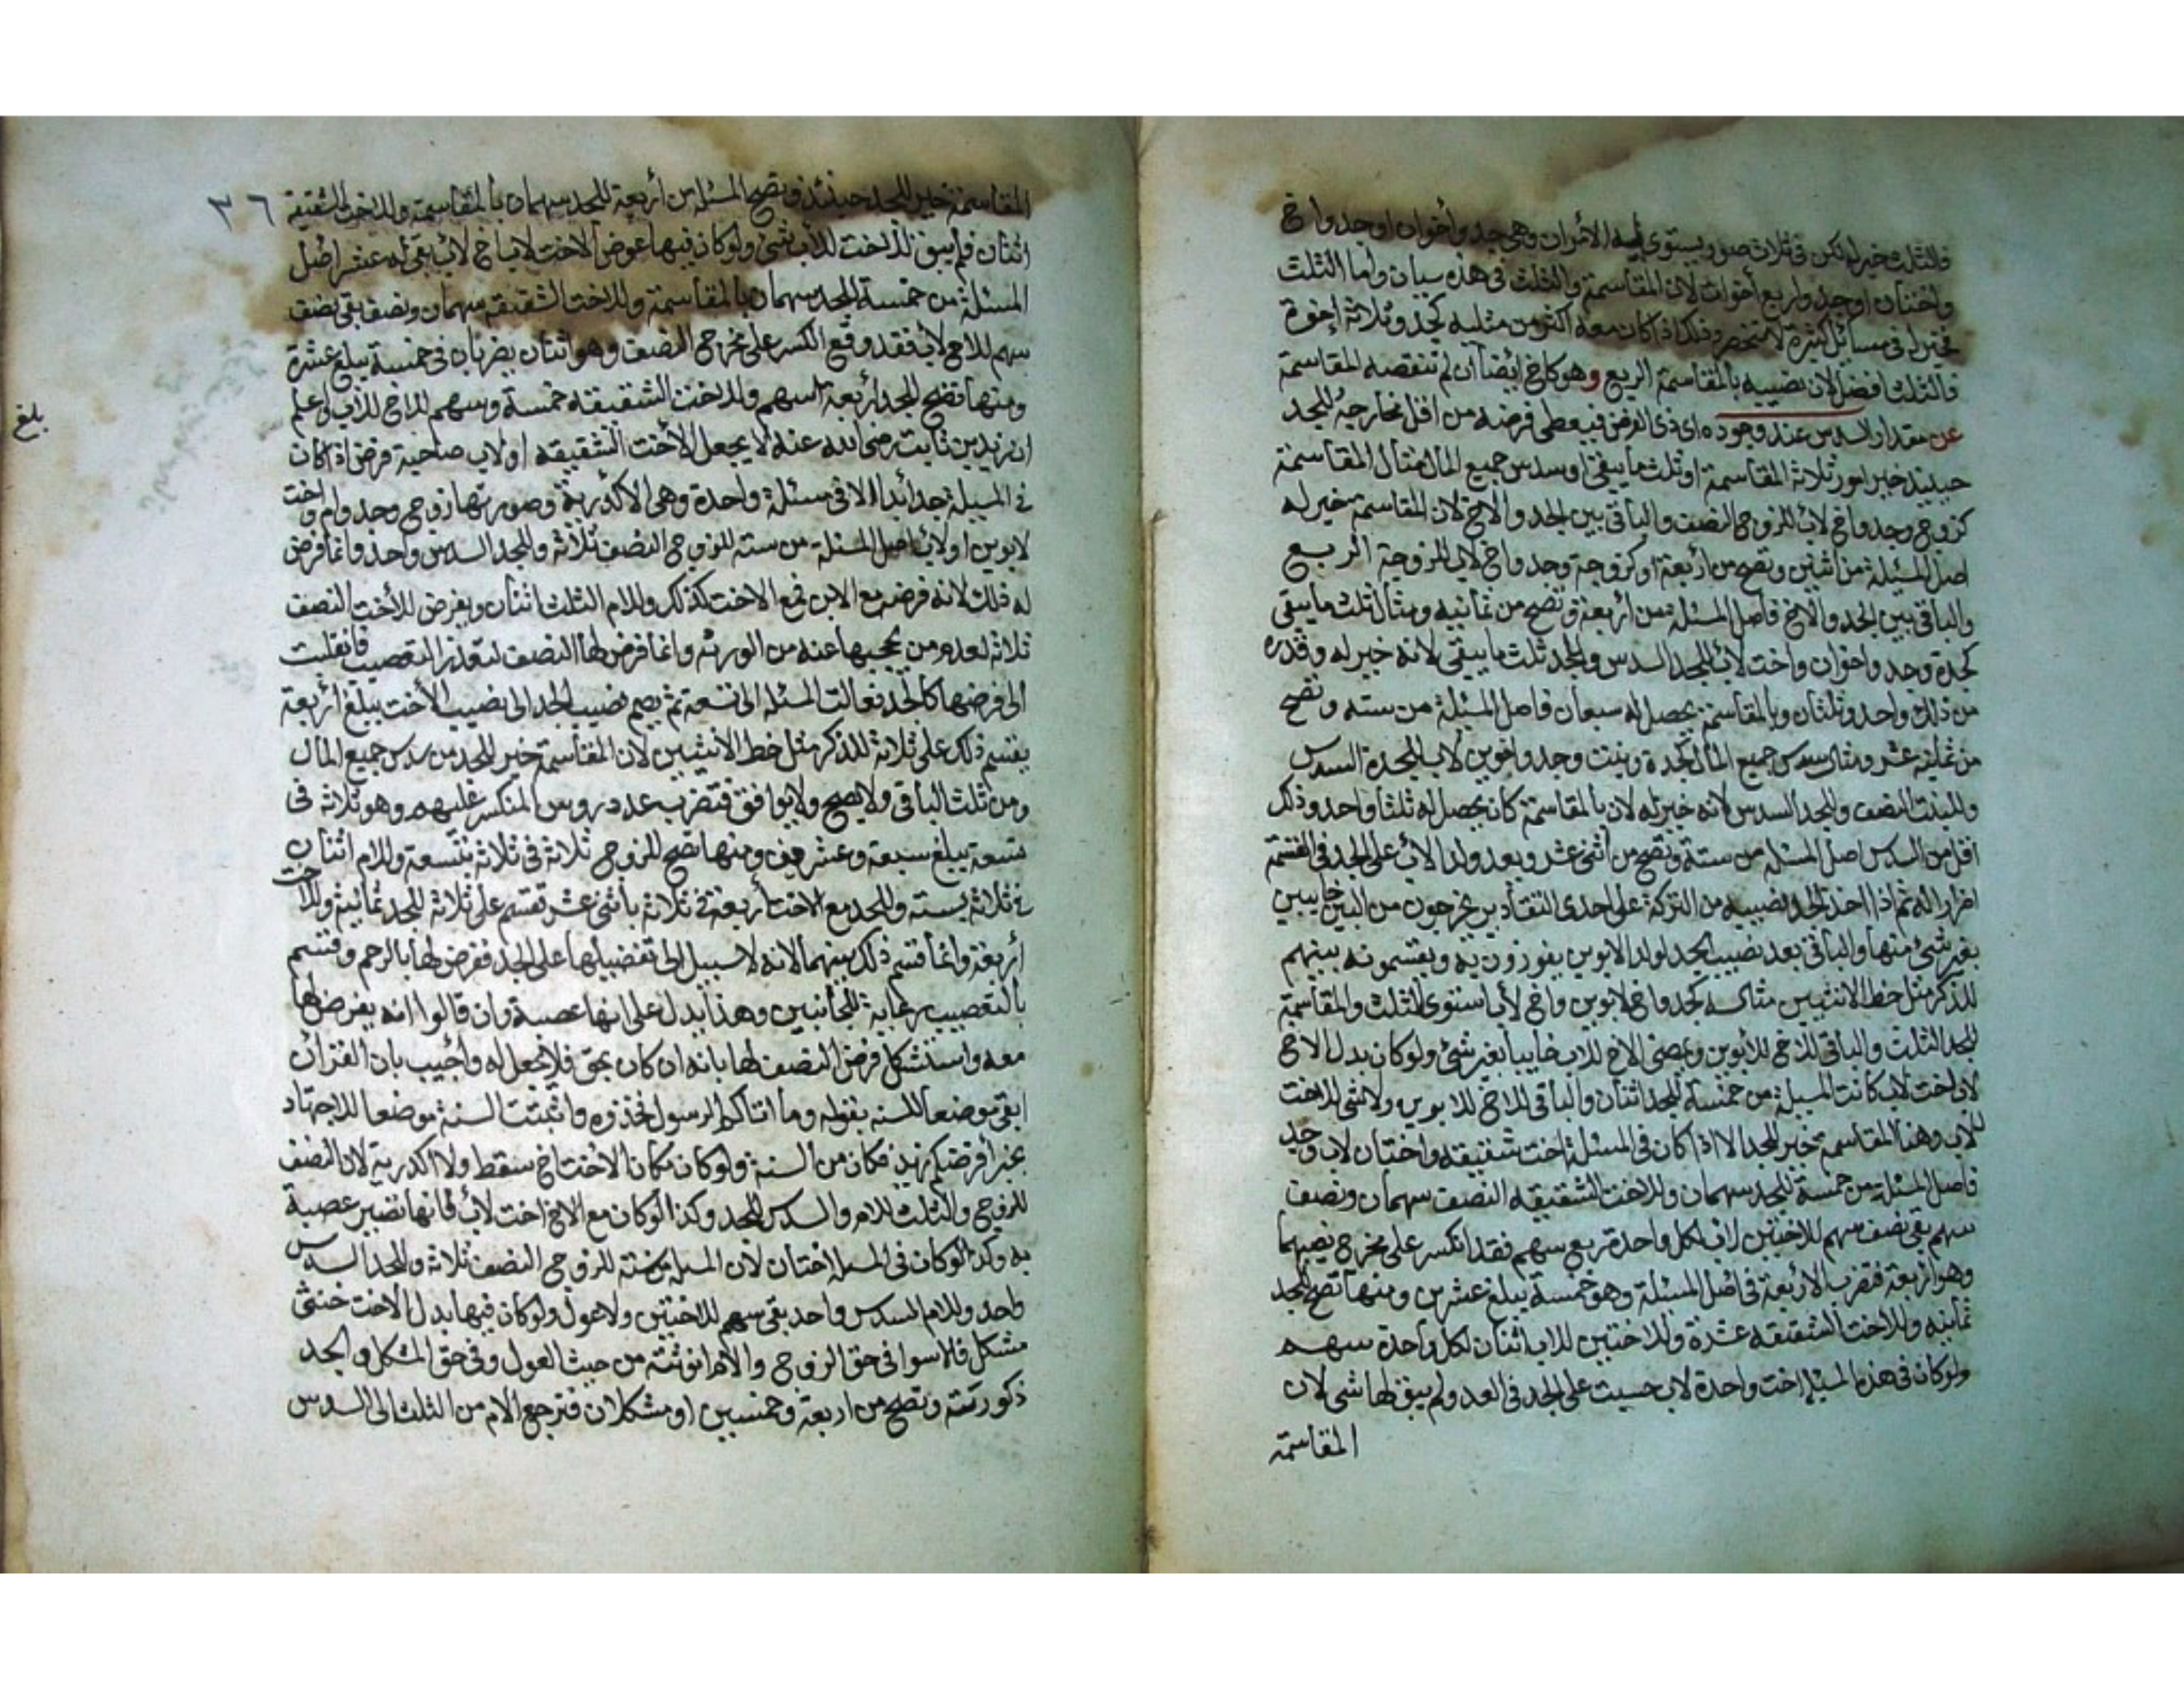 فالثلث خير له لكن في ثلاث صور يستوي فيه الأمران وهي جد وأخوان او جد واخ
واختان او جد واربع أخوات لان المقاسمة والثلث في هذه سيان واما الثلث
في مسائل كثيرة لا تنحصر وذلك اذا كان معه اكثر من مثليه كجد وثلاثة إخوة
فالثلث افضل لان نصيبه بالمقاسمة الربع وهو كاخ ايضا ان لم تنقصه المقاسمة
عن مقدار السدس عند وجوده اى ذى الفرض فيعطى فرضه من اقل مخارجه للجد
حينئذ خير امور ثلاثة المقاسمة او ثلث ما يبقى او سدس جميع المال مثال المقاسمة
كزوج وجد واخ لاب للزوج النصف والباقى بين الجد والاخ لان المقاسمة خير له
اصل المسئلة من اثنين وتصح من أربعة او كزوجة وجد واخ لاب للزوجة الربع
والباقى بين الجد والاخ فاصل المسئلة من أربعة وتصح من ثمانيه ومثال ثلث ما يبقى
كجدة وجد واخوان واخت لاب للجدة السدس وللجد ثلث ما يبقى لانه خير له وقدره
من ذلك واحد وثلثان وبالمقاسمة يحصل له سبعان فاصل المسئلة من سته وتصح
من ثمانية عشر ومثال سدس جميع المال كجدة وبنت وجد واخوين لاب للجدة السدس
وللبنت النصف وللجد السدس لانه خير له لان بالمقاسمة كان يحصل له ثلثا واحد وذلك
اقل من السدس اصل المسئله من ستة وتصح من اثنى عشر ويعد ولد الاب على الجد في القسمة
اضرارا له ثم اذا اخذ الجد نصيبه من التركة على احدى التقادير يخرجون من البين خايبين
بغير شئ منها والباقى بعد نصيب الجد لولد الابوين يفوزون به ويقتسمونه بينهم
للذكر مثل حظ الانثيين مثاله كجد واخ لابوين واخ لأب استوى الثلث والمقاسمة
للجد الثلث والباقى للاخ للأبوين ويمضى الاخ للاب خايبا بغير شئ ولو كان بدل الاخ
لاب اخت لاب كانت المسئلة من خمسة للجد اثنان والباقى للاخ للابوين ولا شئ للاخت
للاب وهنا المقاسمة خير للجد الا اذا كان في المسئلة اخت شقيقة واختان لاب وجد
فاصل المسئلة من خمسة للجد سهمان وللاخت الشقيقه النصف سهمان ونصف
سهم بقى نصف سهم للاختين لاب لكل واحدة ربع سهم فقد انكسر على مخرج نصيبهما
وهو أربعة فتضرب الاربعة في اصل المسئلة وهو خمسة يبلغ عشرين ومنها تصح للجد
ثمانيه وللاخت الشقيقه عشرة وللاختين للاب اثنان لكل واحدة سهم
ولو كان في هذه المسئلة اخت واحدة لاب حسبت على الجد في العدد ولم يبق لها شى لان
المقاسمة
٣٦
المقاسمة خير للجد حينئذ وتصح المسئلة من أربعة للجد سهمان بالمقاسمة وللاخت الشقيقة
اثنان فلم يبق للاخت للأب شئ ولو كان فيها عوض الاخت لاب اخ لاب بقى له عشر اصل
المسئلة من خمسة للجد سهمان بالمقاسمة وللاخت الشقيقه سهمان ونصف بقى نصف
سهم للاخ لاب فقد وقع الكسر على مخرج النصف وهو اثنان يضربان في خمسة يبلغ عشرة
ومنها تصح للجد أربعة اسهم وللاخت الشقيقه خمسة وسهم للاخ للاب واعلم
بلغ
ان زيد بن ثابت رضى الله عنه لا يجعل الأخت الشقيقه او لاب صاحبة فرض اذا كان
في المسئلة جد أبدا الا في مسئلة واحدة وهي الاكدرية وصورتها زوج وجد وام واخت
لابوين او لاب اصل المسئلة من سته للزوج النصف ثلاثة وللجد السدس واحد وانما فرض
له ذلك لانه فرضه مع الابن فمع الاخت كذلك وللام الثلث اثنان ويفرض للأخت النصف
ثلاثة لعدم من يحجبها عنه من الورثه وانما فرض لها النصف لتعذر التعصيب فانقلبت
الى فرضها كالجد فعالت المسئله الى تسعة ثم يضم نصيب الجد الى نصيب الأخت يبلغ أربعة
يقسم ذلك على ثلاثة للذكر مثل حظ الانثيين لان المقاسمة خير للجد من سدس جميع المال
ومن ثلث الباقى ولا يصح ولا يوافق فتضرب عدد رؤس المنكسر عليهم وهو ثلاثه في
تسعة يبلغ سبعة وعشرين ومنها تصح للزوج ثلاثة في ثلاثة بتسعة وللام اثنان
في ثلاثة بسته وللجد مع الاخت أربعة في ثلاثة باثنى عشر تقسم على ثلاثة للجد ثمانية وللاخت
أربعة وانما قسم ذلك بينهما لانه لا سبيل الى تفضيلها على الجد ففرض لها بالرحم وقسم
بالتعصيب رعاية للجانبين وهذا يدل على انها عصبة وان قالوا انه يفرض لها
معه واستشكل فرض النصف لها بانه ان كان بحق فلا نجعل له وأجيب بان القرآن
ابقى موضعا للسنه بقوله وما اتاكم الرسول فخذوه واثبتت السنة موضعا للاجتهاد
بخبر أفرضكم زيد فكان من السنة ولو كان مكان الاخت اخ سقط ولا اكدرية لان النصف
للزوج والثلث للام والسدس للجد وكذا لو كان مع الاخ اخت لأب فانها تصير عصبة
به وكذا لو كان في المسئلة اختان لان المسئلة من ستة للزوج النصف ثلاثة وللجد السدس
واحد وللام السدس واحد بقى سهم للاختين ولا عول ولو كان فيها بدل الاخت خنثى
مشكل فالاسوا في حق الزوج والام انوثته من حيث العول وفي حق المشكل والجد
ذكورته وتصح من اربعة وخمسين او مشكلان فترجع الام من الثلث الى السدس